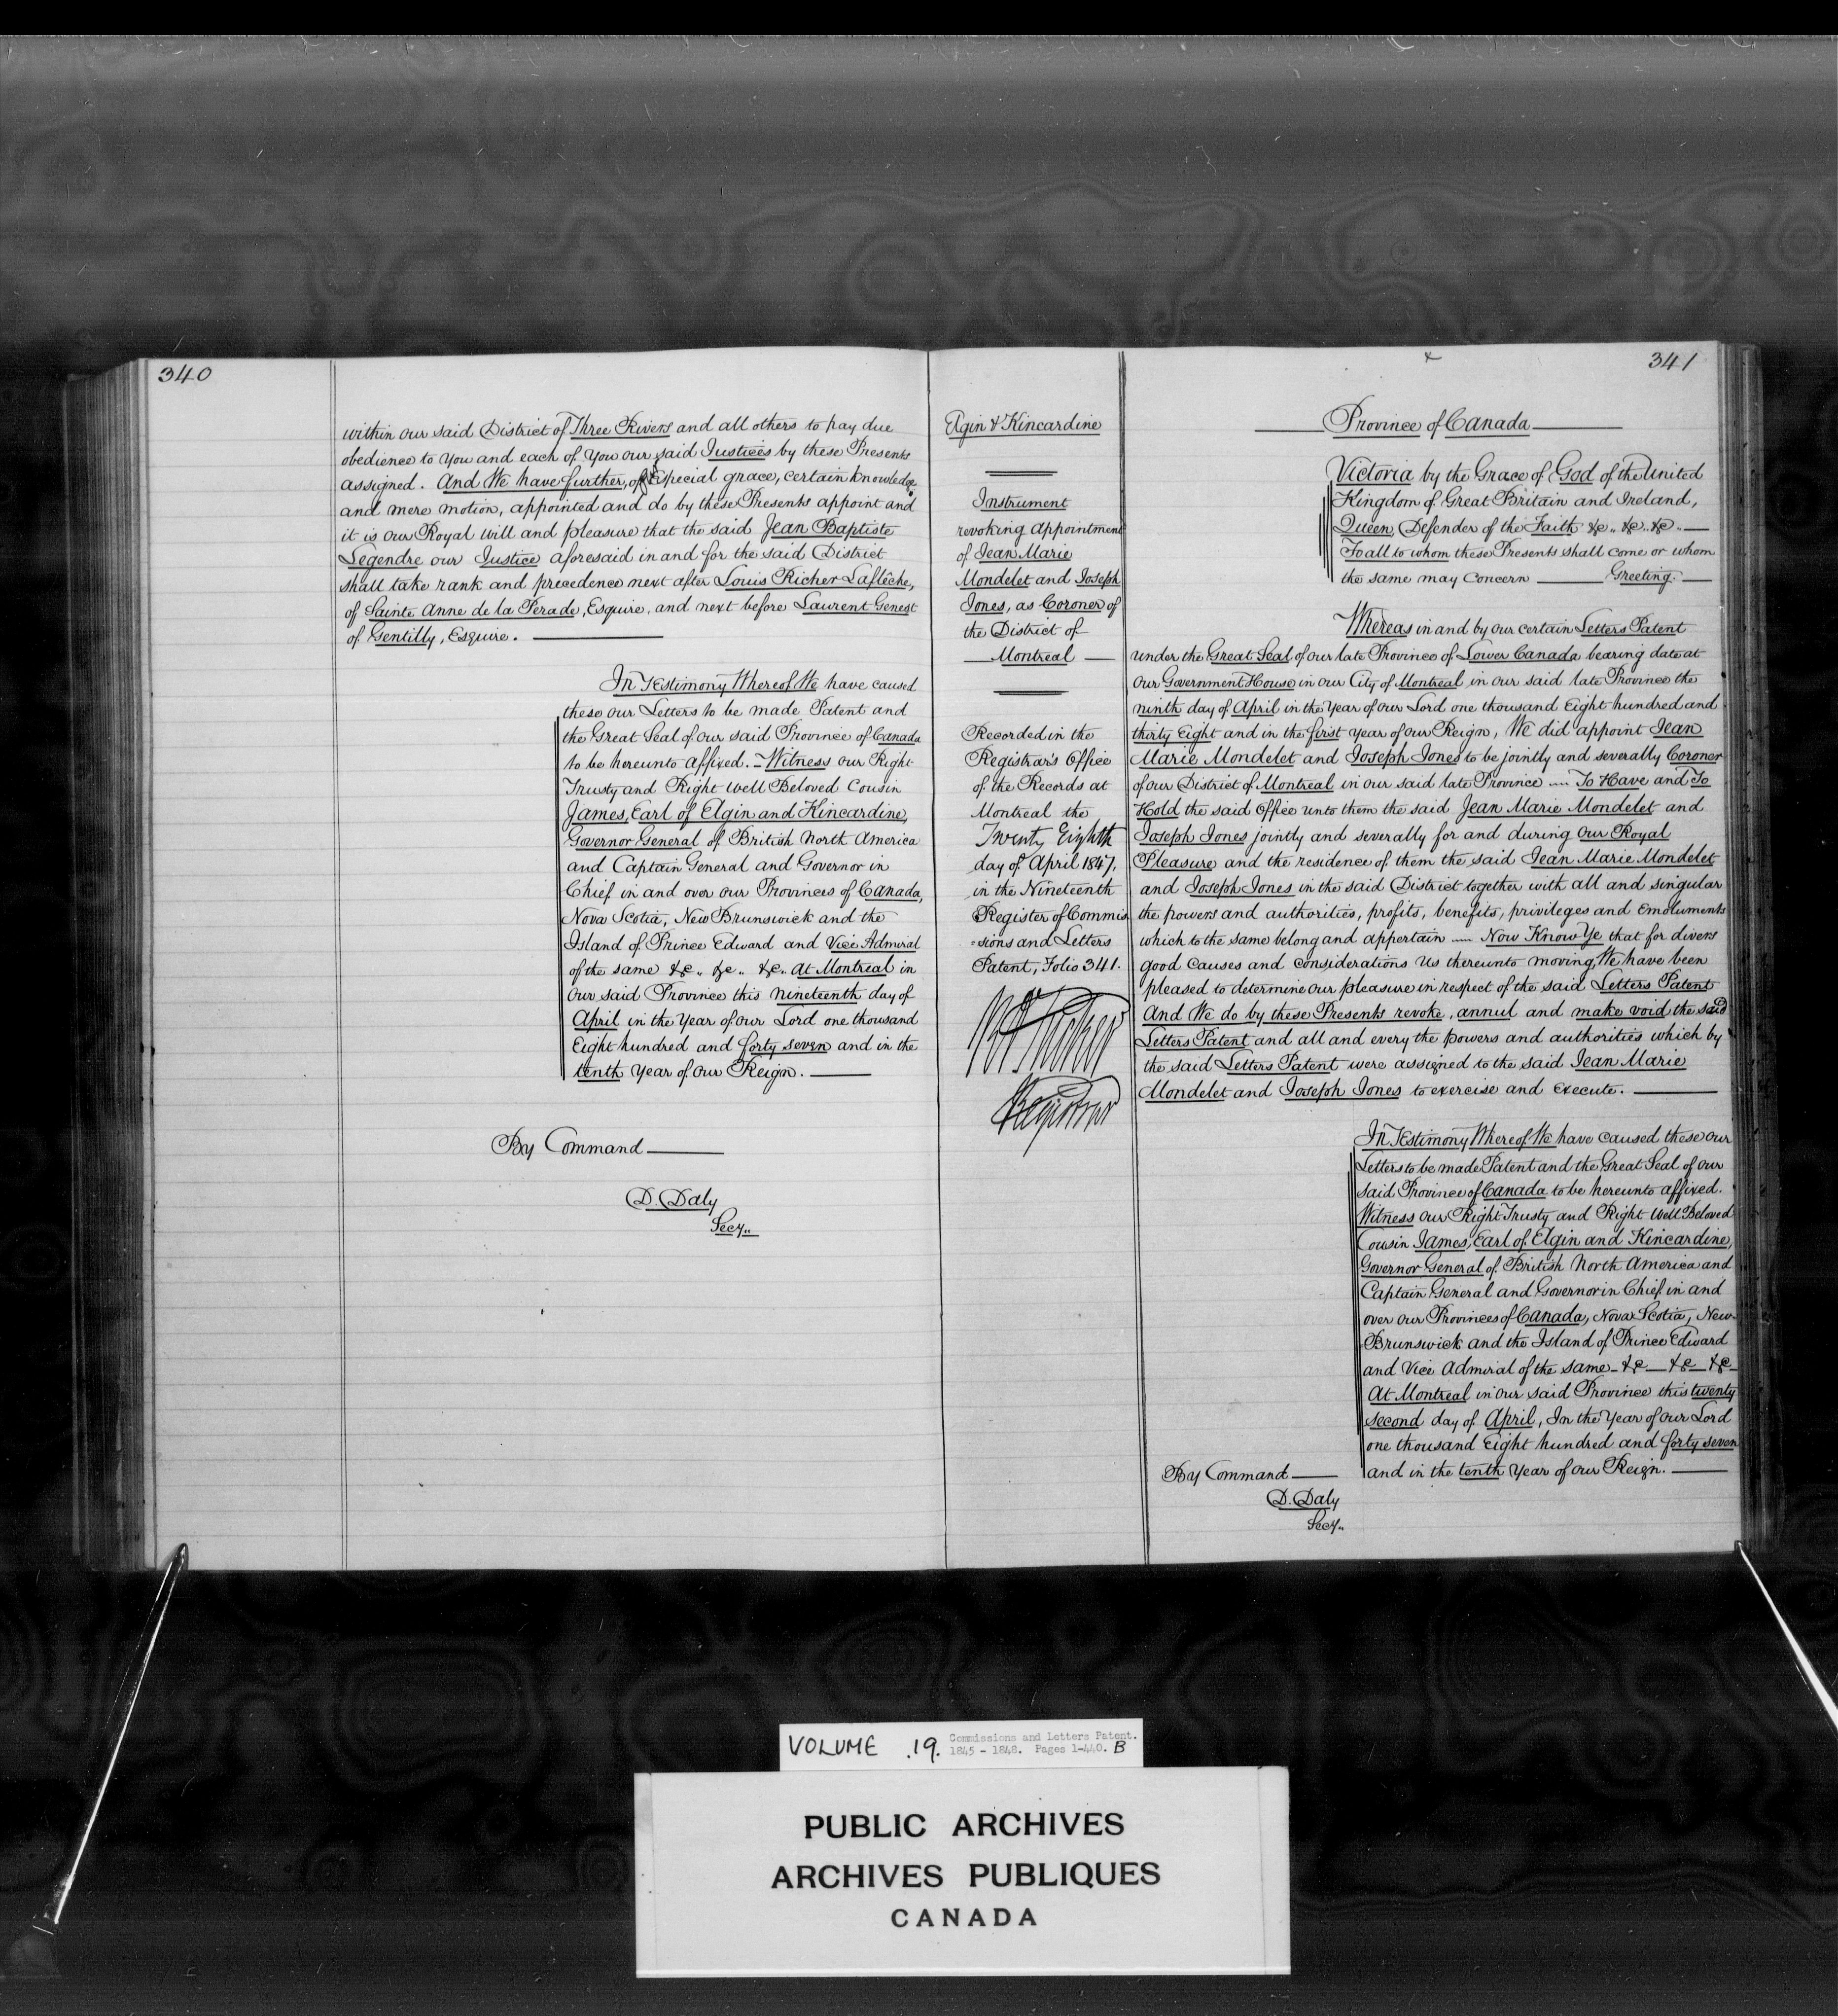 340
within our said District of Three Rivers and all others to pay due
obedience to You and each of You our said Justices by these Presents
assigned. And We have further, of Especial grace, certain knowledge
and mere motion, appointed and do by these Presents appoint and
it is our Royal will and pleasure that the said Jean Baptiste
Legendre our Justice aforesaid in and for the said District
shall take rank and precedence next after Louis Richer Laflêche,
of Sainte Anne de la Perade, Esquire, and next before Laurent Genest
of Gentilly, Esquire.
In Testimony Whereof We have caused
these our Letters to be made Patent and
the Great Seal of our said Province of Canada
to be hereunto affixed. Witness our Right
Trusty and Right Well Beloved Cousin
James, Earl of Elgin and Kincardine,
Governor General of British North America
and Captain General and Governor in
Chief in and over our Provinces of Canada,
Nova Scotia, New Brunswick and the
Island of Prince Edward and Vice Admiral
of the same &c.. &c.. &c.. At Montreal in
our said Province this nineteenth day of
April in the Year of our Lord one thousand
Eight hundred and forty seven and in the
tenth Year of our Reign.
By Command
D. Daly
Secy..
Elgin & Kincardine
Instrument
revoking appointment
of Jean Marie
Mondelet and Joseph
Jones, as Coroner of
the District of
Montreal
Recorded in the
Registrar's Office
of the Records at
Montreal the
Twenty Eighth
day of April 1847,
in the Nineteenth
Register of Commis
=sions and Letters
Patent, Folio 341.
Registrar
341
Province of Canada
Victoria by the Grace of God of the United
Kingdom of Great Britain and Ireland,
Queen, Defender of the Faith &c.. &c.. &c..
To all to whom these Presents shall come or whom
the same may Concern Greeting.
Whereas in and by our certain Letters Patent
under the Great Seal of our late Province of Lower Canada bearing date at
our Government House in our City of Montreal in our said late Province the
ninth day of April in the Year of our Lord one thousand Eight hundred and
thirty Eight and in the first Year of our Reign, We did appoint Jean
Marie Mondelet and Joseph Jones to be jointly and severally Coroner
of our District of Montreal in our said late Province .... To Have and To
Hold the said Office unto them the said Jean Marie Mondelet and
Joseph Jones jointly and severally for and during Our Royal
Pleasure and the residence of them the said Jean Marie Mondelet
and Joseph Jones in the said District together with all and singular
the powers and authorities, profits, benefits, privileges and Emoluments
which to the same belong and appertain .... Now Know Ye that for divers
good Causes and Considerations Us thereunto moving, We have been
pleased to determine our pleasure in respect of the said Letters Patent
And We do by these Presents revoke, annul and make void the said
Letters Patent and all and every the powers and authorities which by
the said Letters Patent were assigned to the said Jean Marie
Mondelet and Joseph Jones to exercise and execute.
In Testimony Whereof We have caused these our
Letters to be made Patent and the Great Seal of our
said Province of Canada to be hereunto affixed.
Witness our Right Trusty and Right Well Beloved
Cousin James, Earl of Elgin and Kincardine,
Governor General of British North America and
Captain General and Governor in Chief in and
over our Provinces of Canada, Nova Scotia, New
Brunswick and the Island of Prince Edward
and Vice Admiral of the same &c &c &c
At Montreal in our said Province this twenty
second day of April, In the Year of our Lord
one thousand Eight hundred and forty seven
and in the tenth Year of our Reign.
By Command
D. Daly
Secy..
VOLUME .19. Commissions and Letters Patent.
1845 - 1848. Pages 1-440. B
PUBLIC ARCHIVES
ARCHIVES PUBLIQUES
CANADA